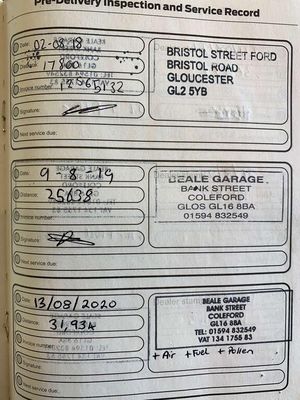 Pre-Delivery Inspection and Service Record
Date: 02-08-18
Distance: 17360
Invoice number:
Signature:
Next service due:
BRISTOL STREET FORD
BRISTOL ROAD
GLOUCESTER
GL2 5YB
Date: 9-8-19
Distance: 25638
Invoice number:
Signature:
Next service due:
BEALE GARAGE
BANK STREET
COLEFORD
GLOS GL16 8BA
01594 832549
Date: 13/08/2020
Distance: 31,934
Invoice number:
Signature:
Next service due:
Dealer stamp
BEALE GARAGE
BANK STREET
COLEFORD
GL16 8BA
TEL: 01594 832549
VAT 134 1755 83
+ Air + Fuel + Pollen